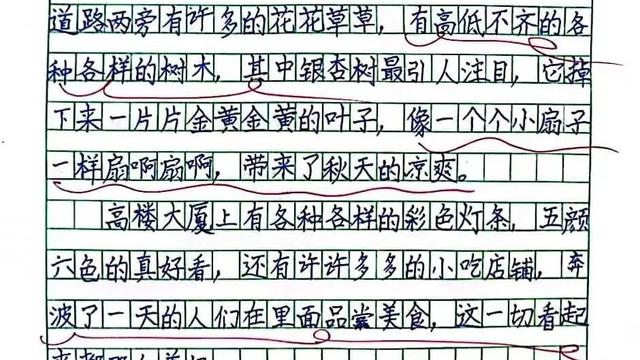 道路两旁有许多的花花草草，有高低不齐的各
种各样的树木，其中银杏树最引人注目，它掉
下来一片片金黄金黄的叶子，像一个个小扇子
一样扇啊扇啊，带来了秋天的凉爽。
高楼大厦上有各种各样的彩色灯条，五颜
六色的真好看，还有许许多多的小吃店铺，奔
波了一天的人们在里面品尝美食，这一切看起